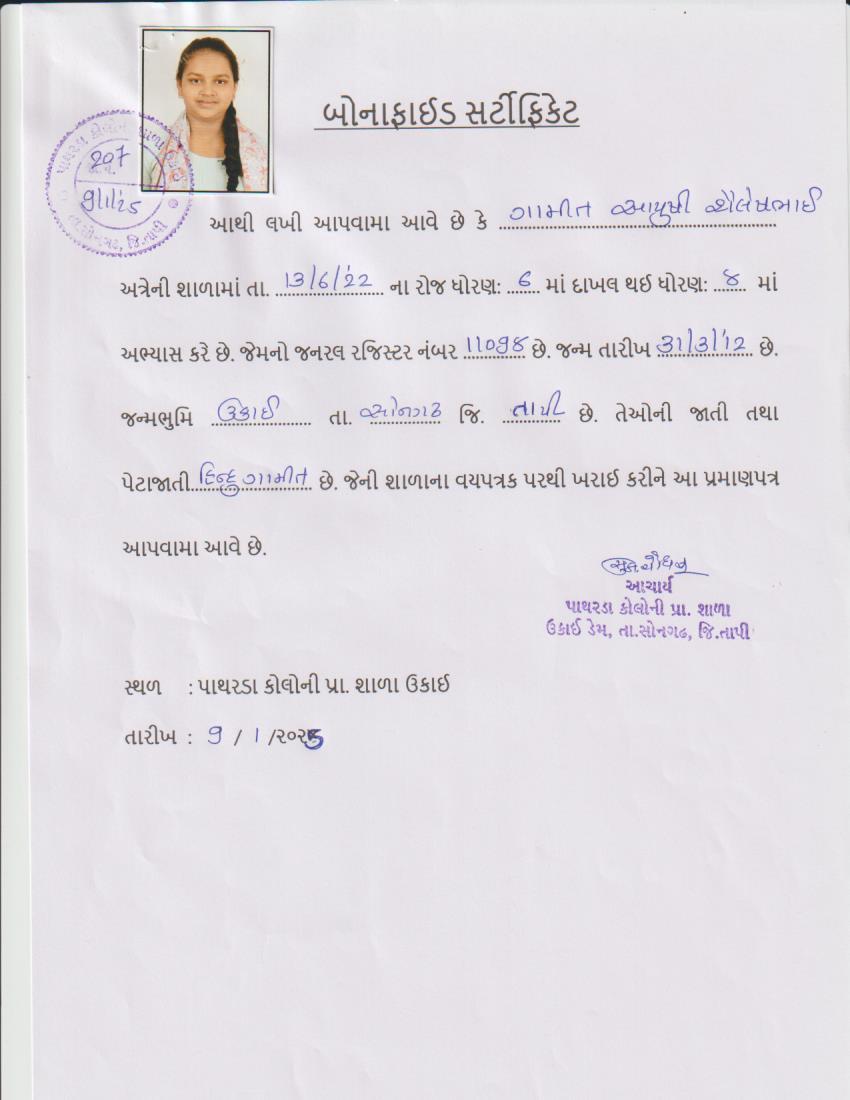 બોનાફાઈડ સર્ટીફિકેટ
પાથરડા કોલોની શાળા
207
9/1/25
તા.સોનગઢ, જિ.તાપી
આથી લખી આપવામા આવે છે કે ગામીત આયુષી શૈલેષભાઈ
અત્રેની શાળામાં તા. 13/6/'22 ના રોજ ધોરણ: 6 માં દાખલ થઈ ધોરણ: ૪ માં
અભ્યાસ કરે છે. જેમનો જનરલ રજિસ્ટર નંબર 110૭૪ છે. જન્મ તારીખ 31/3/'12 છે.
જન્મભુમિ ઉકાઈ તા. સોનગઢ જિ. તાપી છે. તેઓની જાતી તથા
પેટાજાતી હિન્દુ ગામીત છે. જેની શાળાના વયપત્રક પરથી ખરાઈ કરીને આ પ્રમાણપત્ર
આપવામા આવે છે.
આચાર્ય
પાથરડા કોલોની પ્રા. શાળા
ઉકાઈ ડેમ, તા.સોનગઢ, જિ.તાપી
સ્થળ : પાથરડા કોલોની પ્રા. શાળા ઉકાઈ
તારીખ : 9 / 1 /૨૦૨5